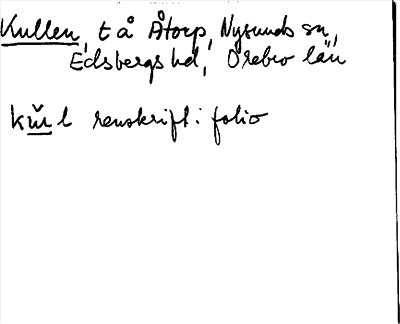 Kullen, t å Åtorp, Nysunds sn,
Edsbergs hd, Örebro län
renskrift i folio